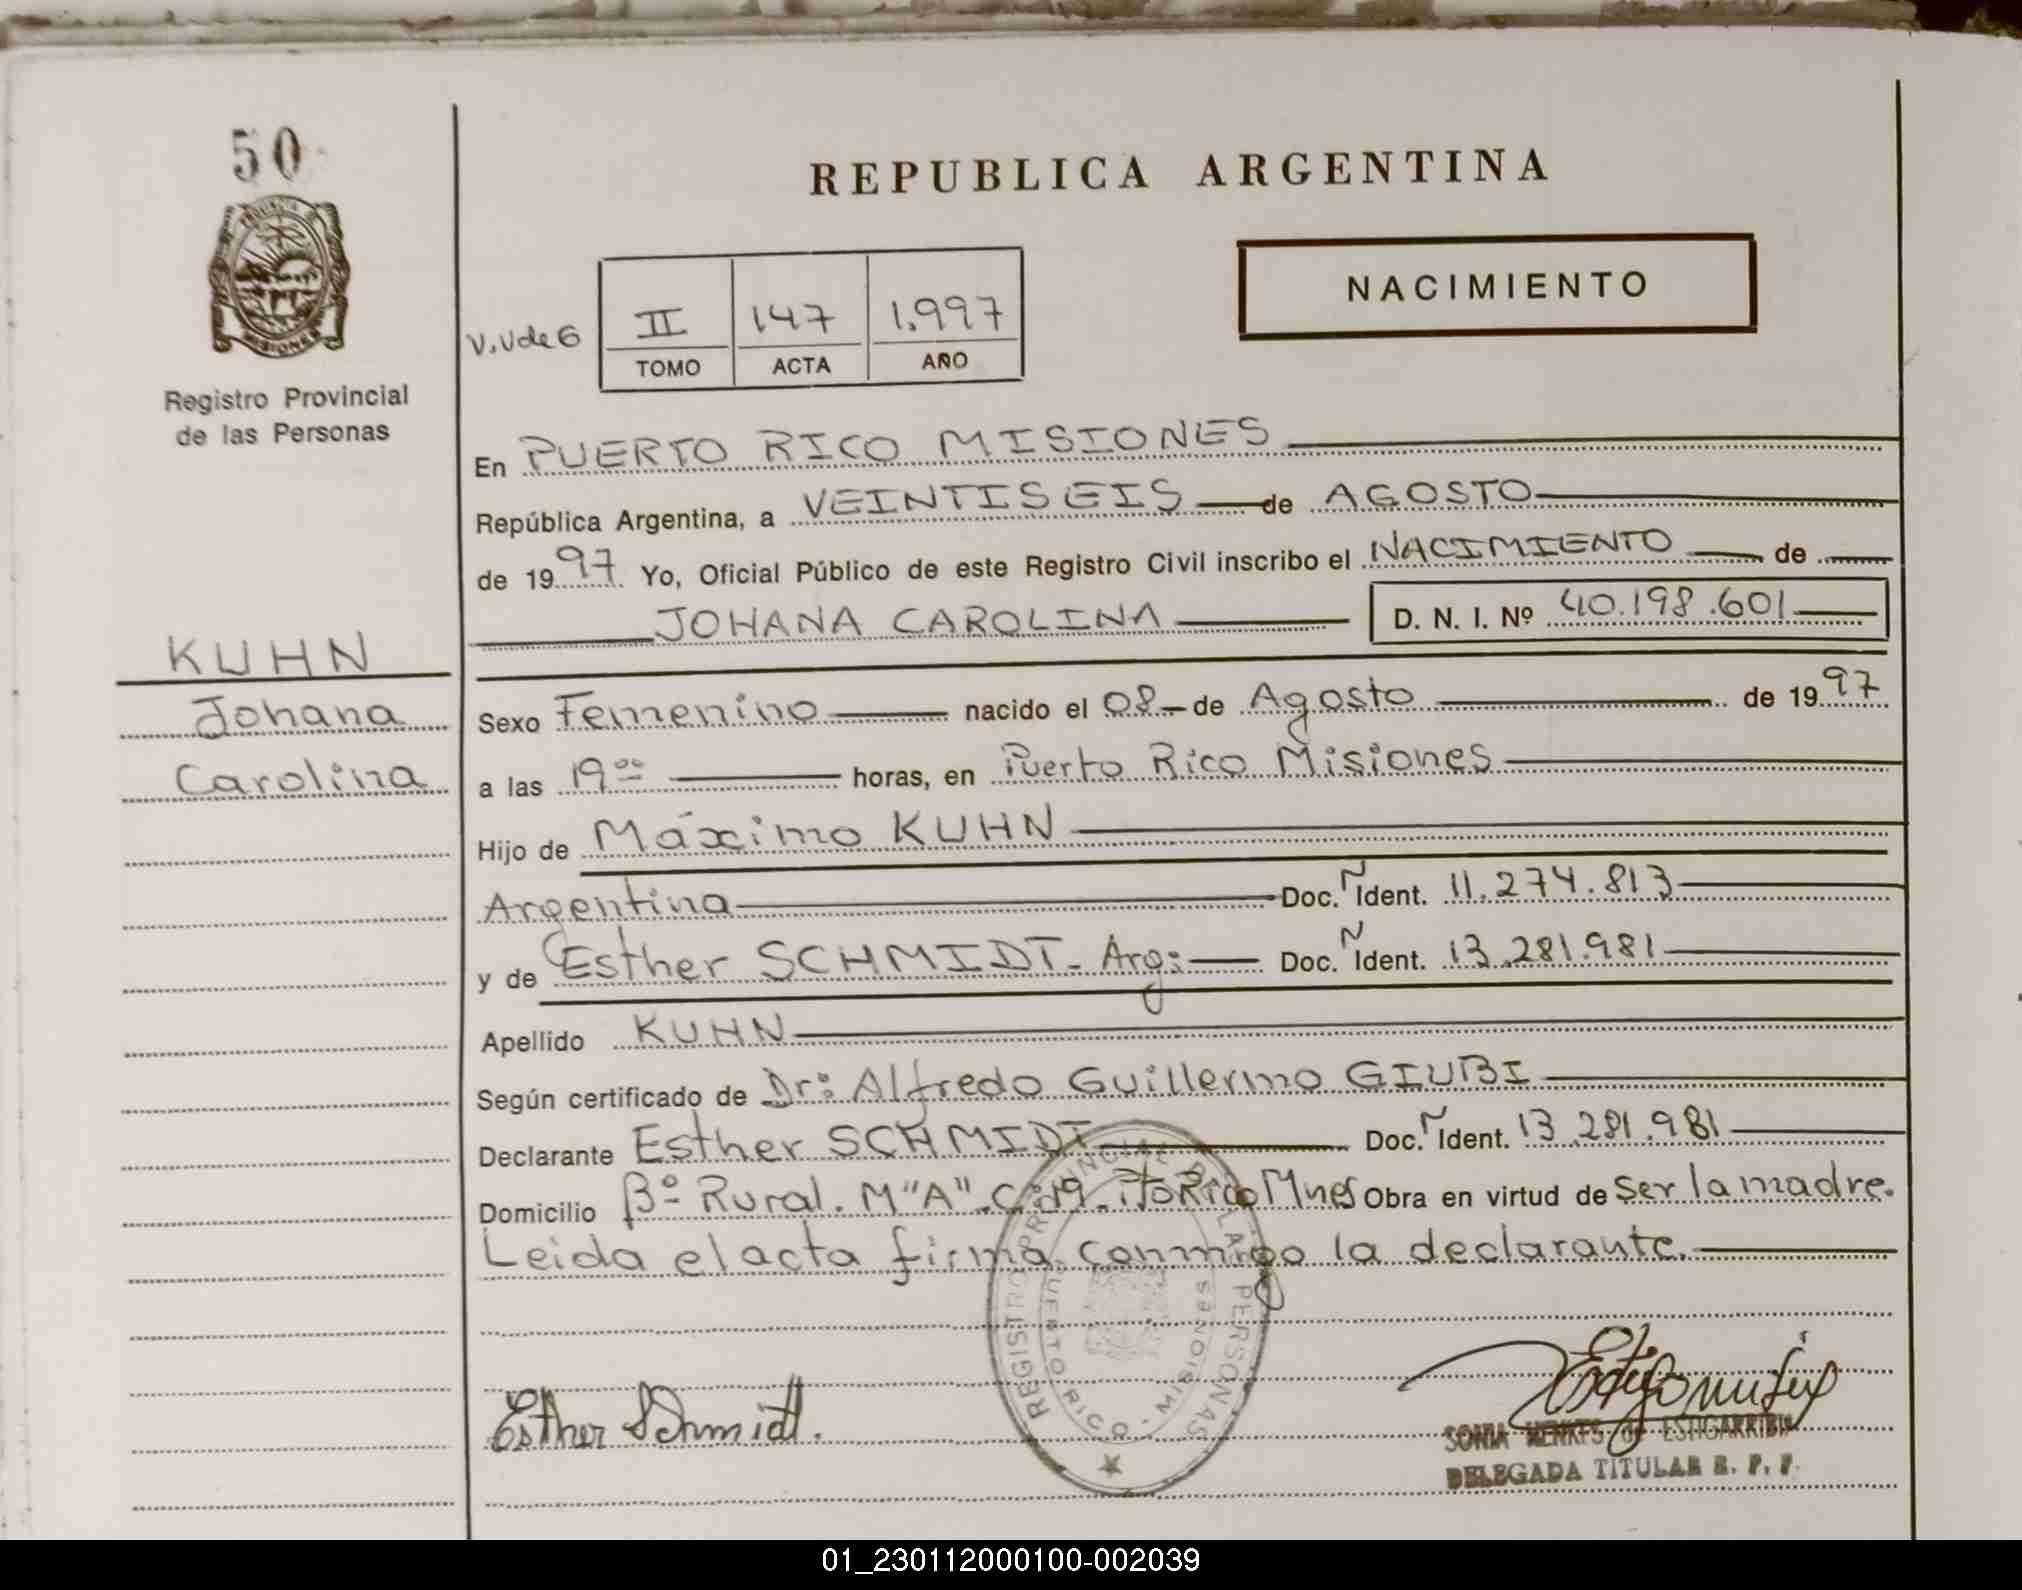 50
REPUBLICA ARGENTINA
PROVINCIA DE
MISIONES
NACIMIENTO
V.Ude6
II 147 1.997
TOMO ACTA AÑO
Registro Provincial
de las Personas
En PUERTO RICO MISIONES
República Argentina, a VEINTISEIS de AGOSTO
de 1997 Yo, Oficial Público de este Registro Civil inscribo el NACIMIENTO de
JOHANA CAROLINA D. N. I. Nº 40.198.601
KUHN
Johana
Carolina
Sexo Femenino nacido el 08 de Agosto de 1997
a las 19 00 horas, en Puerto Rico Misiones
Hijo de Máximo KUHN
Argentina Doc. N Ident. 11.274.813
y de Esther SCHMIDT - Arg: Doc. N Ident. 13.281.981
Apellido KUHN
Según certificado de Dr: Alfredo Guillermo GIUBI
Declarante Esther SCHMIDT Doc. N Ident. 13.281.981
Domicilio Bº Rural. M"A". C:19. Pto Rico Mnes Obra en virtud de ser la madre.
Leida el acta firma conmigo la declarante.
REGISTRO PROVINCIAL DE LAS PERSONAS
PUERTO RICO - MISIONES
Esther Schmidt.
SONIA MENKES de ESTIGARRIBIA
DELEGADA TITULAR R. P. P.
01_230112000100-002039